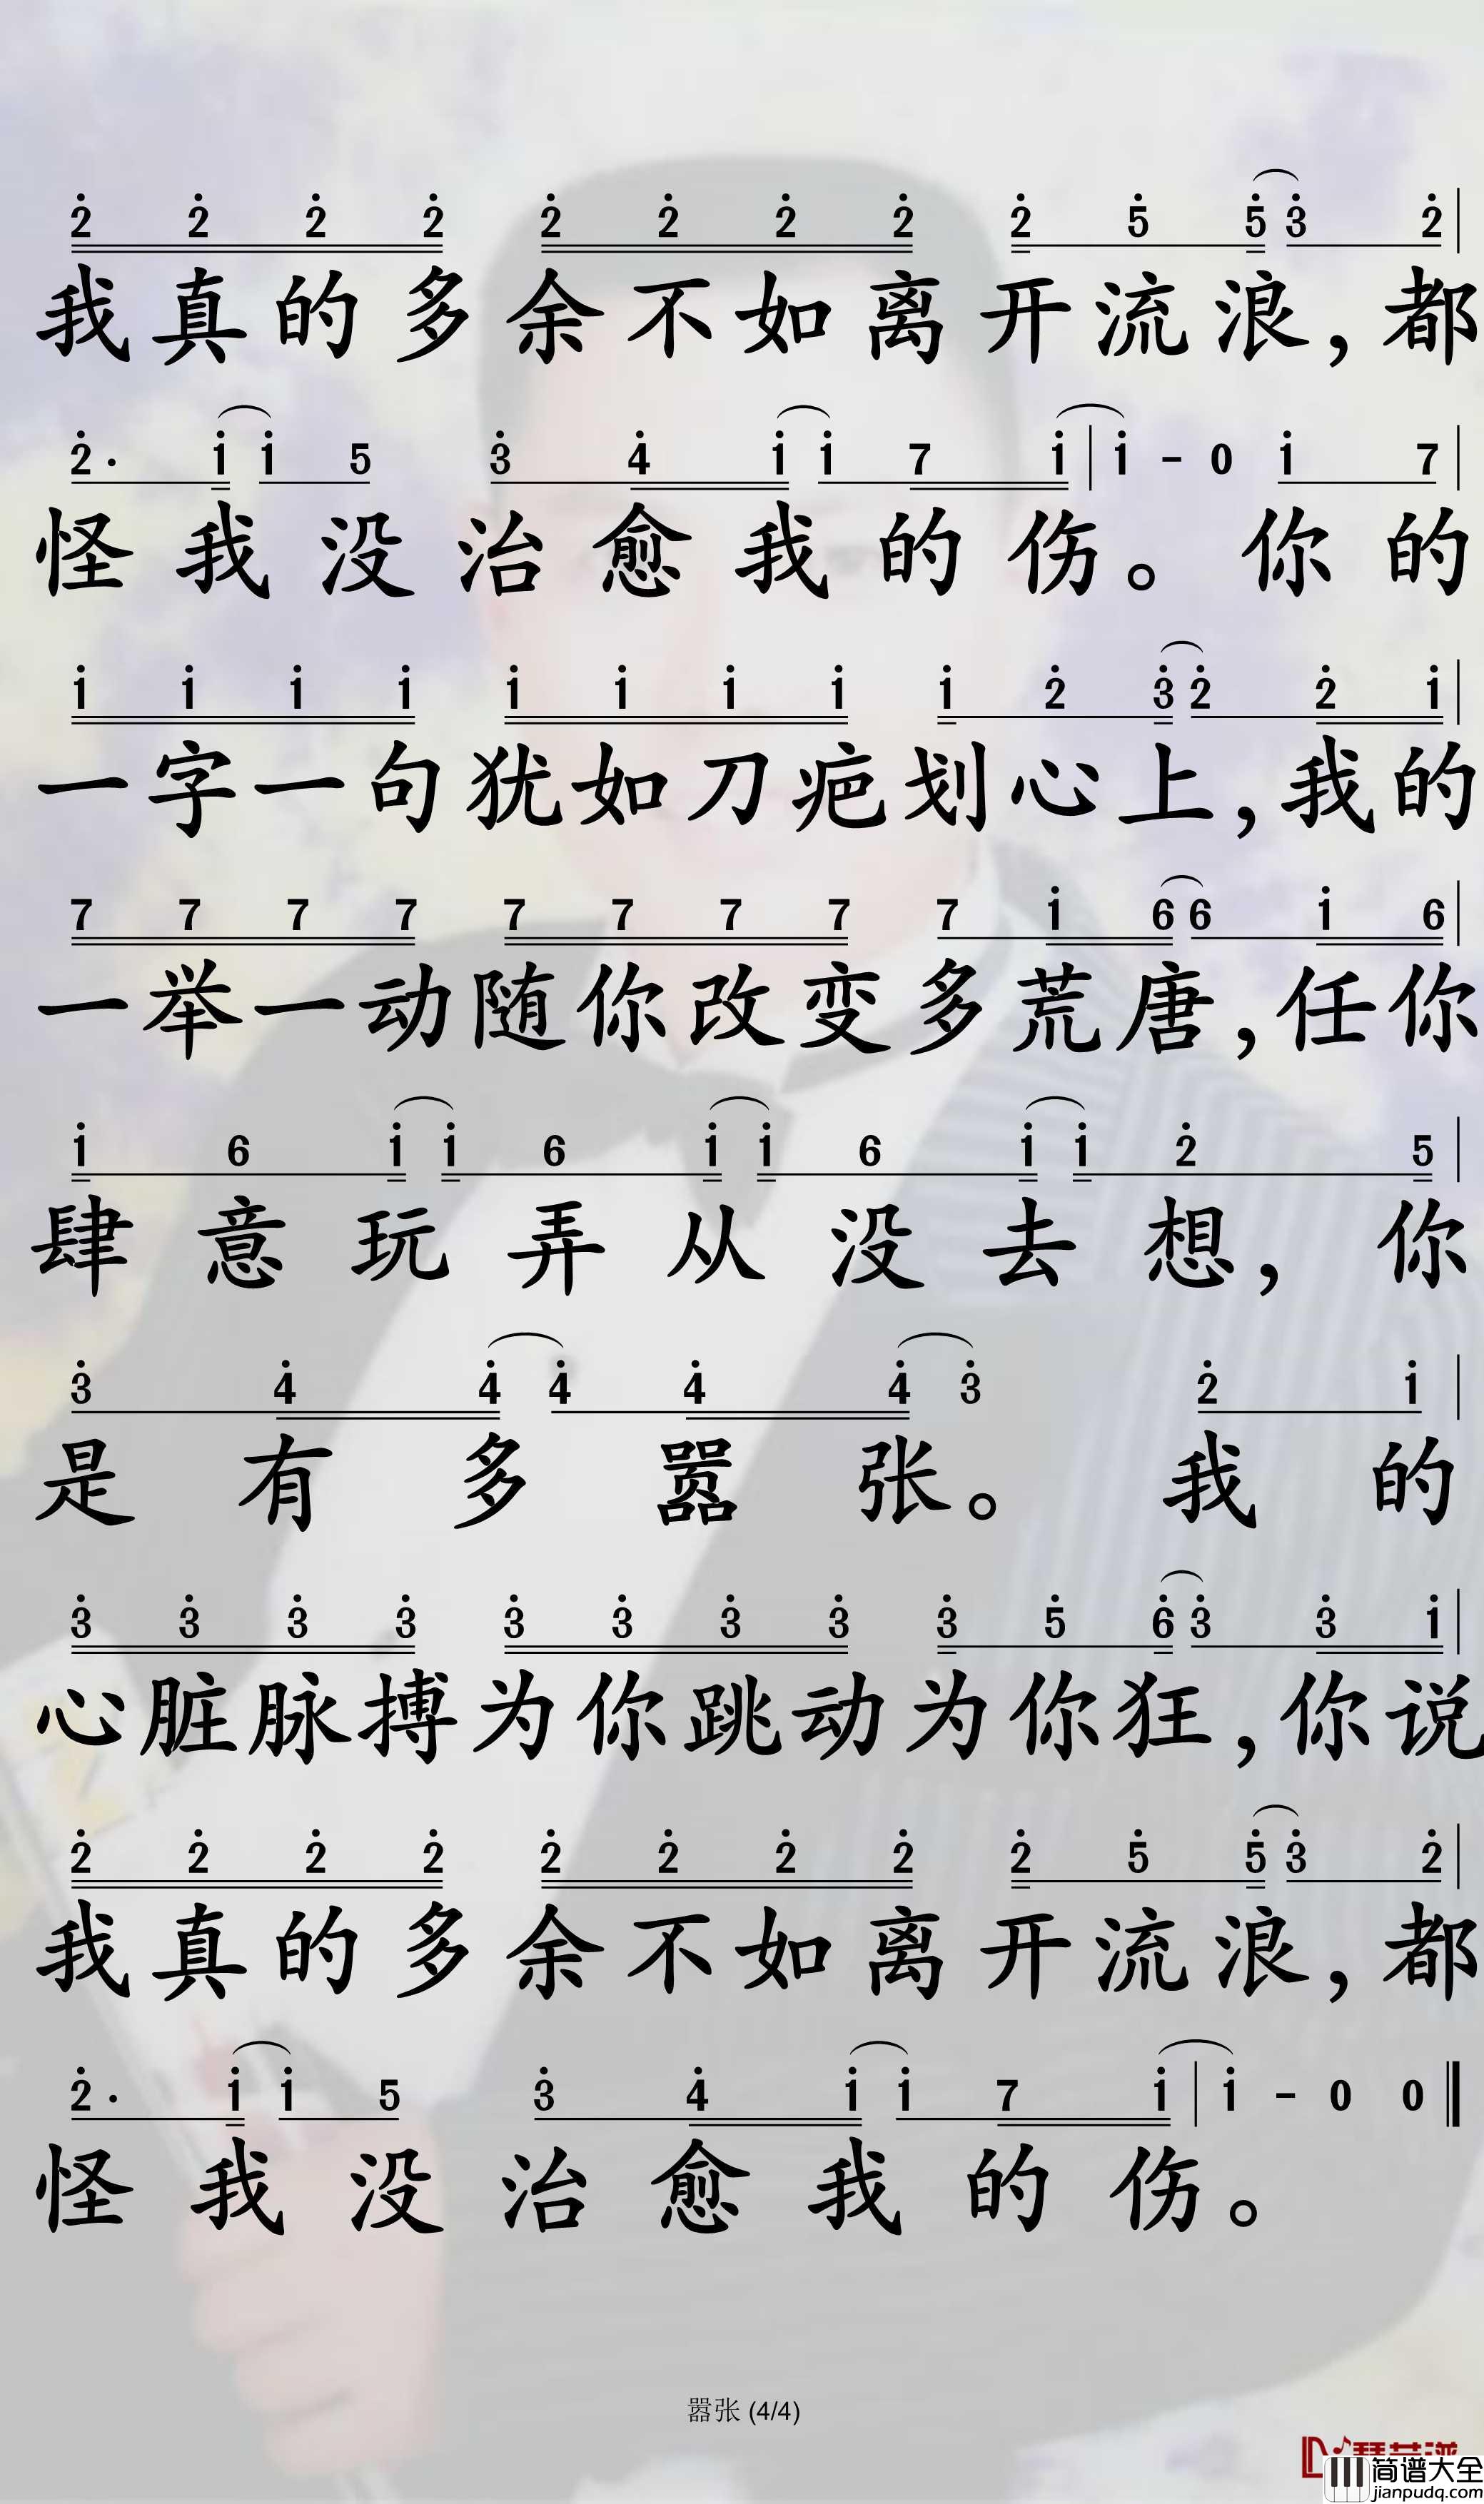 2̇ 2̇ 2̇ 2̇ 2̇ 2̇ 2̇ 2̇ 2̇ 5̇ 5̇ 3̇ 2̇ |
我真的多余不如离开流浪，都
2̇· 1̇ 1̇ 5 3̇ 4̇ 1̇ 1̇ 7 1̇ | 1̇ - 0 1̇ 7 |
怪我没治愈我的伤。你的
1̇ 1̇ 1̇ 1̇ 1̇ 1̇ 1̇ 1̇ 1̇ 2̇ 3̇ 2̇ 2̇ 1̇ |
一字一句犹如刀疤划心上，我的
7 7 7 7 7 7 7 7 7 1̇ 6 6 1̇ 6 |
一举一动随你改变多荒唐，任你
1̇ 6 1̇ 1̇ 6 1̇ 1̇ 6 1̇ 1̇ 2̇ 5 |
肆意玩弄从没去想，你
3̇ 4̇ 4̇ 4̇ 4̇ 4̇ 3̇ 2̇ 1̇ |
是有多嚣张。我的
3̇ 3̇ 3̇ 3̇ 3̇ 3̇ 3̇ 3̇ 3̇ 5̇ 6̇ 3̇ 3̇ 1̇ |
心脏脉搏为你跳动为你狂，你说
2̇ 2̇ 2̇ 2̇ 2̇ 2̇ 2̇ 2̇ 2̇ 5̇ 5̇ 3̇ 2̇ |
我真的多余不如离开流浪，都
2̇· 1̇ 1̇ 5 3̇ 4̇ 1̇ 1̇ 7 1̇ | 1̇ - 0 0 ‖
怪我没治愈我的伤。
嚣张 (4/4)
简谱大全
jianpudq.com